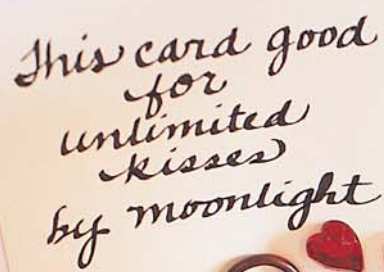 This card good
for
unlimited
kisses
by moonlight